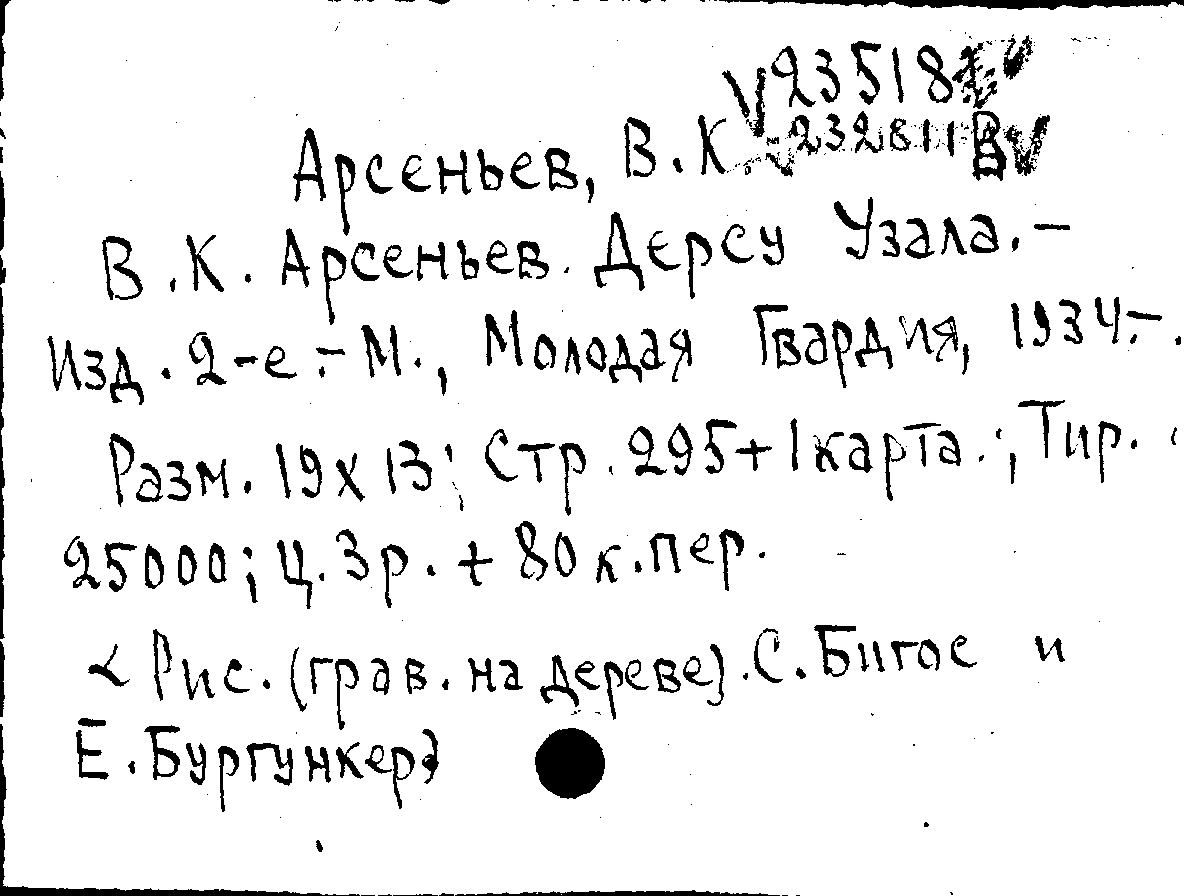 V 23518
Арсеньев, В.К. V 232811 В V
В.К. Арсеньев. Дерсу Узала. –
Изд. 2-е. – М., Молодая Гвардия, 1934. –
Разм. 19х13; Стр. 295+1 карта.; Тир.
25000; Ц. 3р. + 80 к. пер.
< Рис. (грав. на дереве). С. Бигос и
Е. Бургункер>